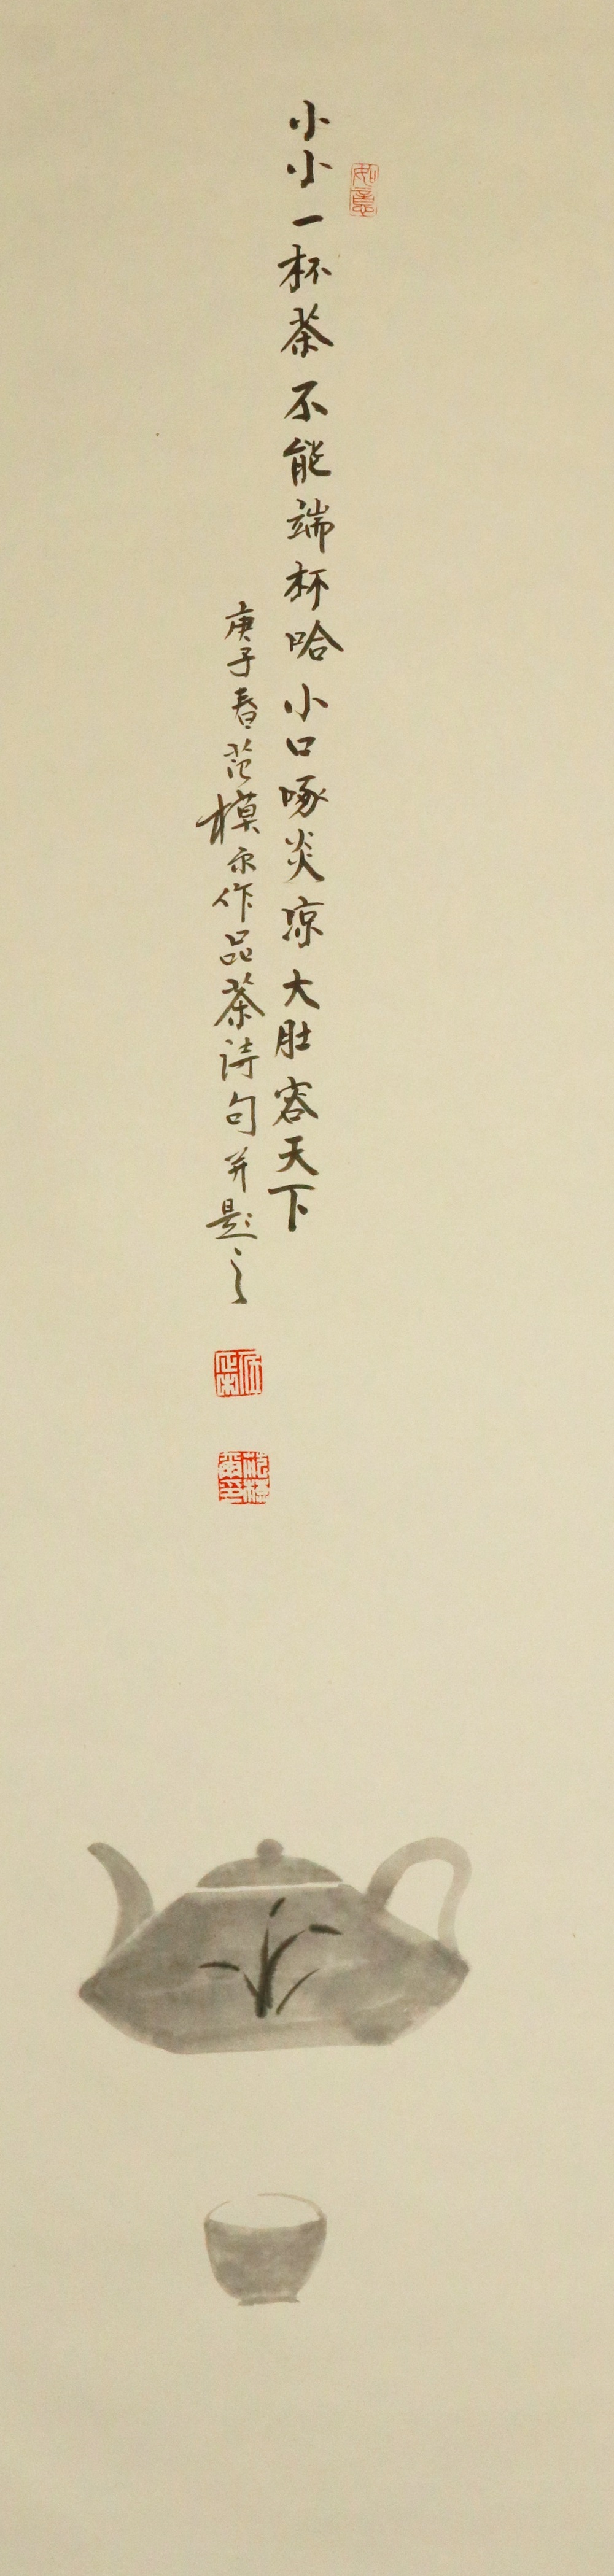 如意
小小一杯茶不能端杯哈小口啄炎凉大肚容天下
庚子春范模尔作品茶诗句并题之